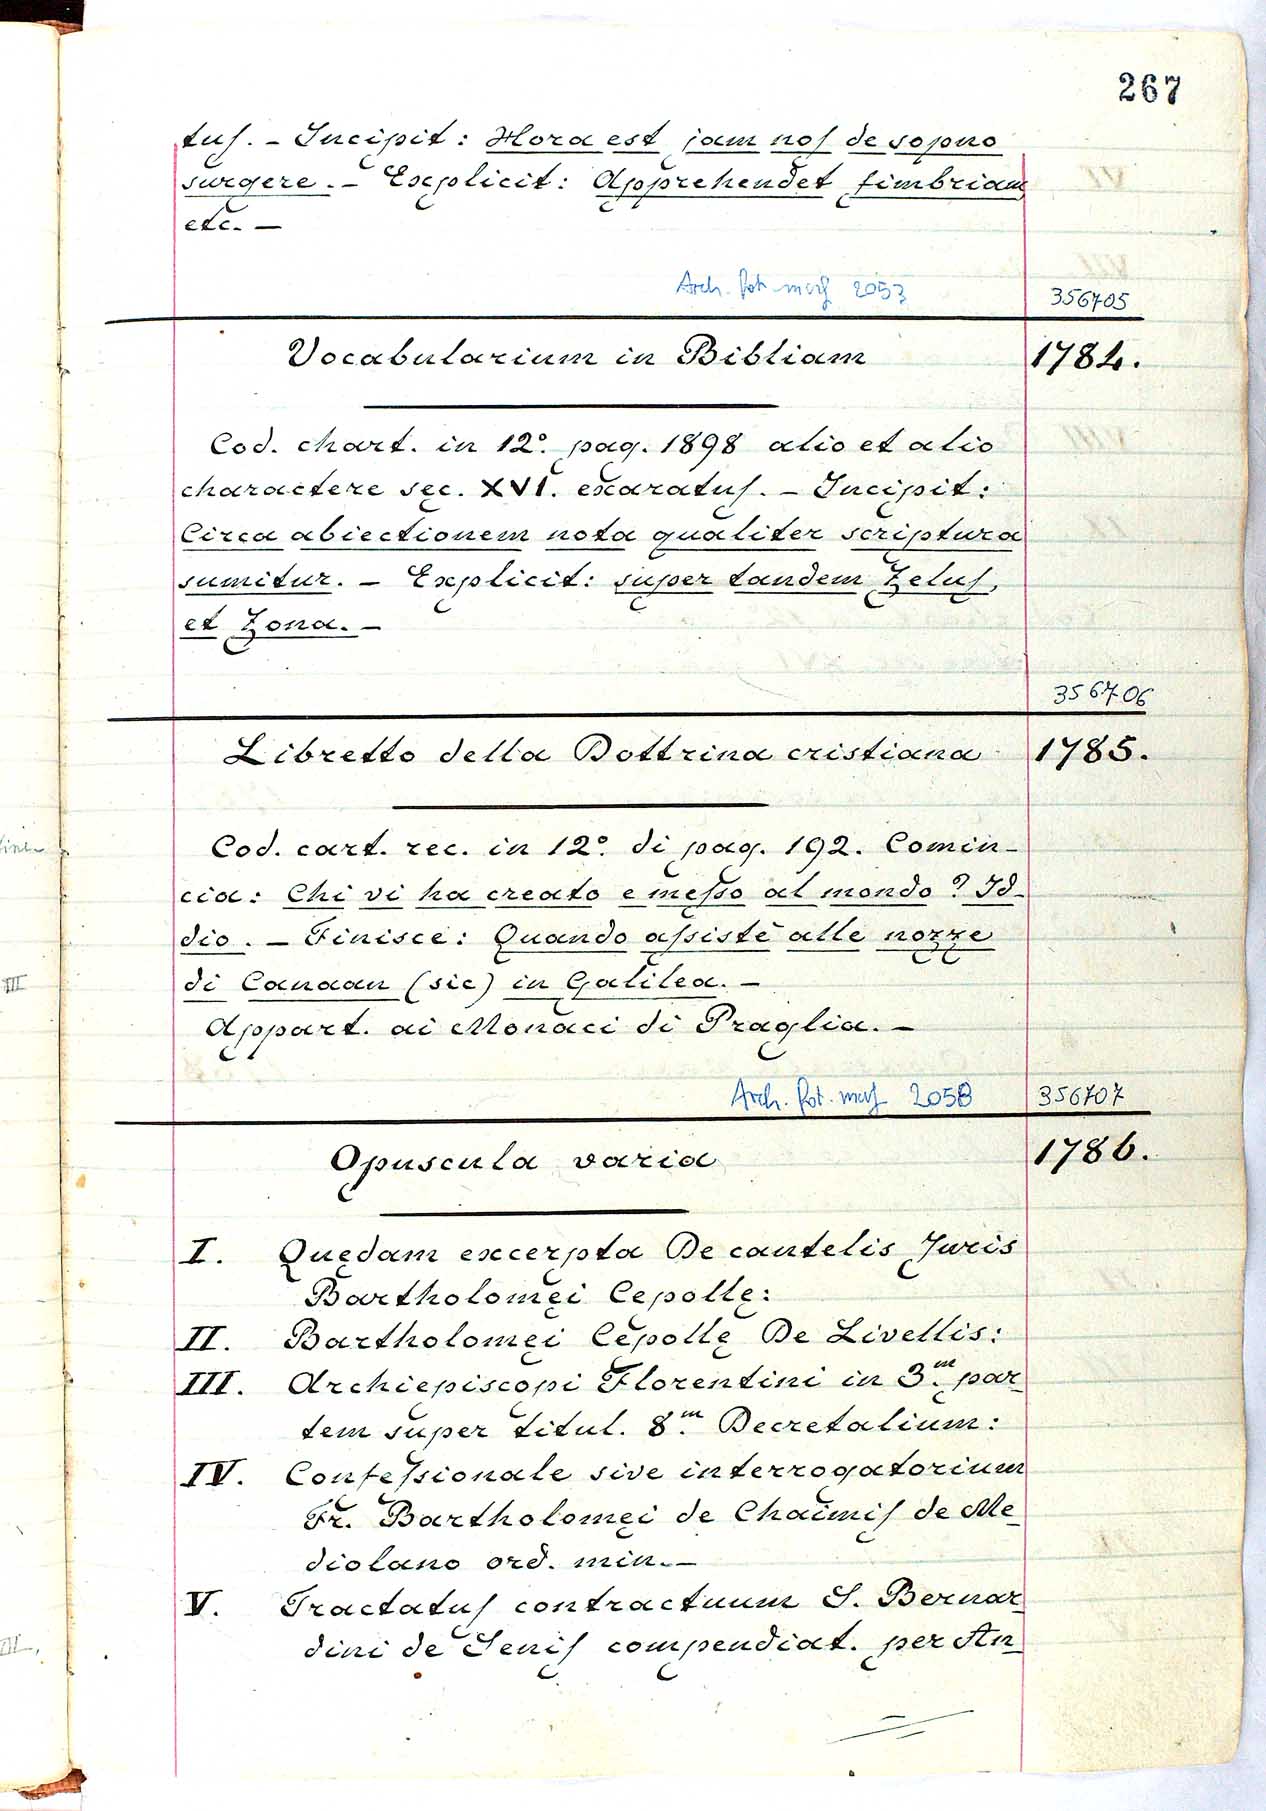 267
tus. – Incipit: Hora est jam nos de sopno
surgere. – Explicit: Apprehendet fimbriam
etc. –
Arch. fot. mss 2053
356705
Vocabularium in Bibliam
1784.
Cod. chart. in 12º. pag. 1898 alio et alio
charactere sec. XVI. exaratus. – Incipit:
Circa abiectionem nota qualiter scriptura
sumitur. – Explicit: super tandem Zelus,
et Zona. –
356706
Libretto della Dottrina cristiana
1785.
Cod. cart. rec. in 12º. di pag. 192. Comin-
cia: Chi vi ha creato e messo al mondo? Id-
dio. – Finisce: Quando assistè alle nozze
di Canaan (sic) in Galilea. –
Appart. ai Monaci di Praglia. –
Arch. fot. mss 2058
356707
Opuscula varia
1786.
I. Quędam excerpta De cautelis Juris
Bartholomęi Cepollę:
II. Bartholomęi Cepollę De Livellis:
III. Archiepiscopi Florentini in 3.m par-
tem super titul. 8.m Decretalium:
IV. Confessionale sive interrogatorium
Fr. Bartholomęi de Chaimis de Me-
diolano ord. min. –
V. Tractatus contractuum S. Bernar-
dini de Senis compendiat. per An-